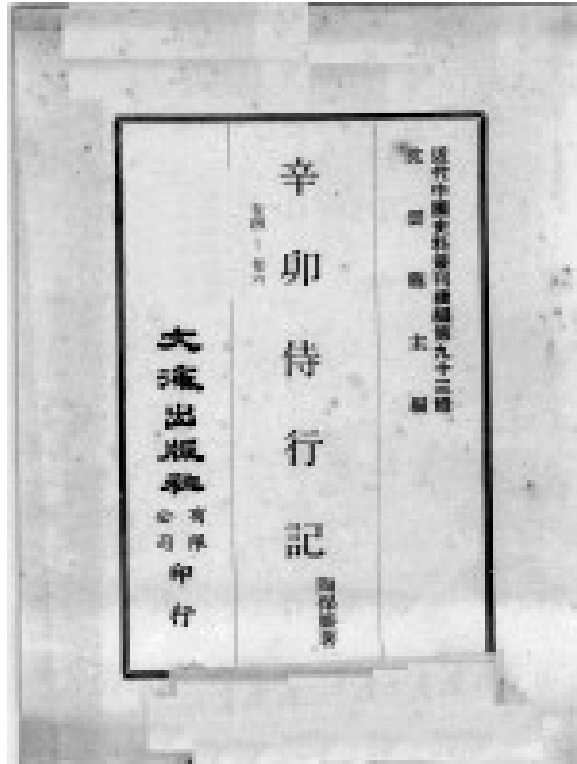 近代中國史料叢刊續編第九十三輯
沈雲龍主編
辛卯侍行記
卷四～卷六
陶保廉著
文海出版社
有限公司
印行